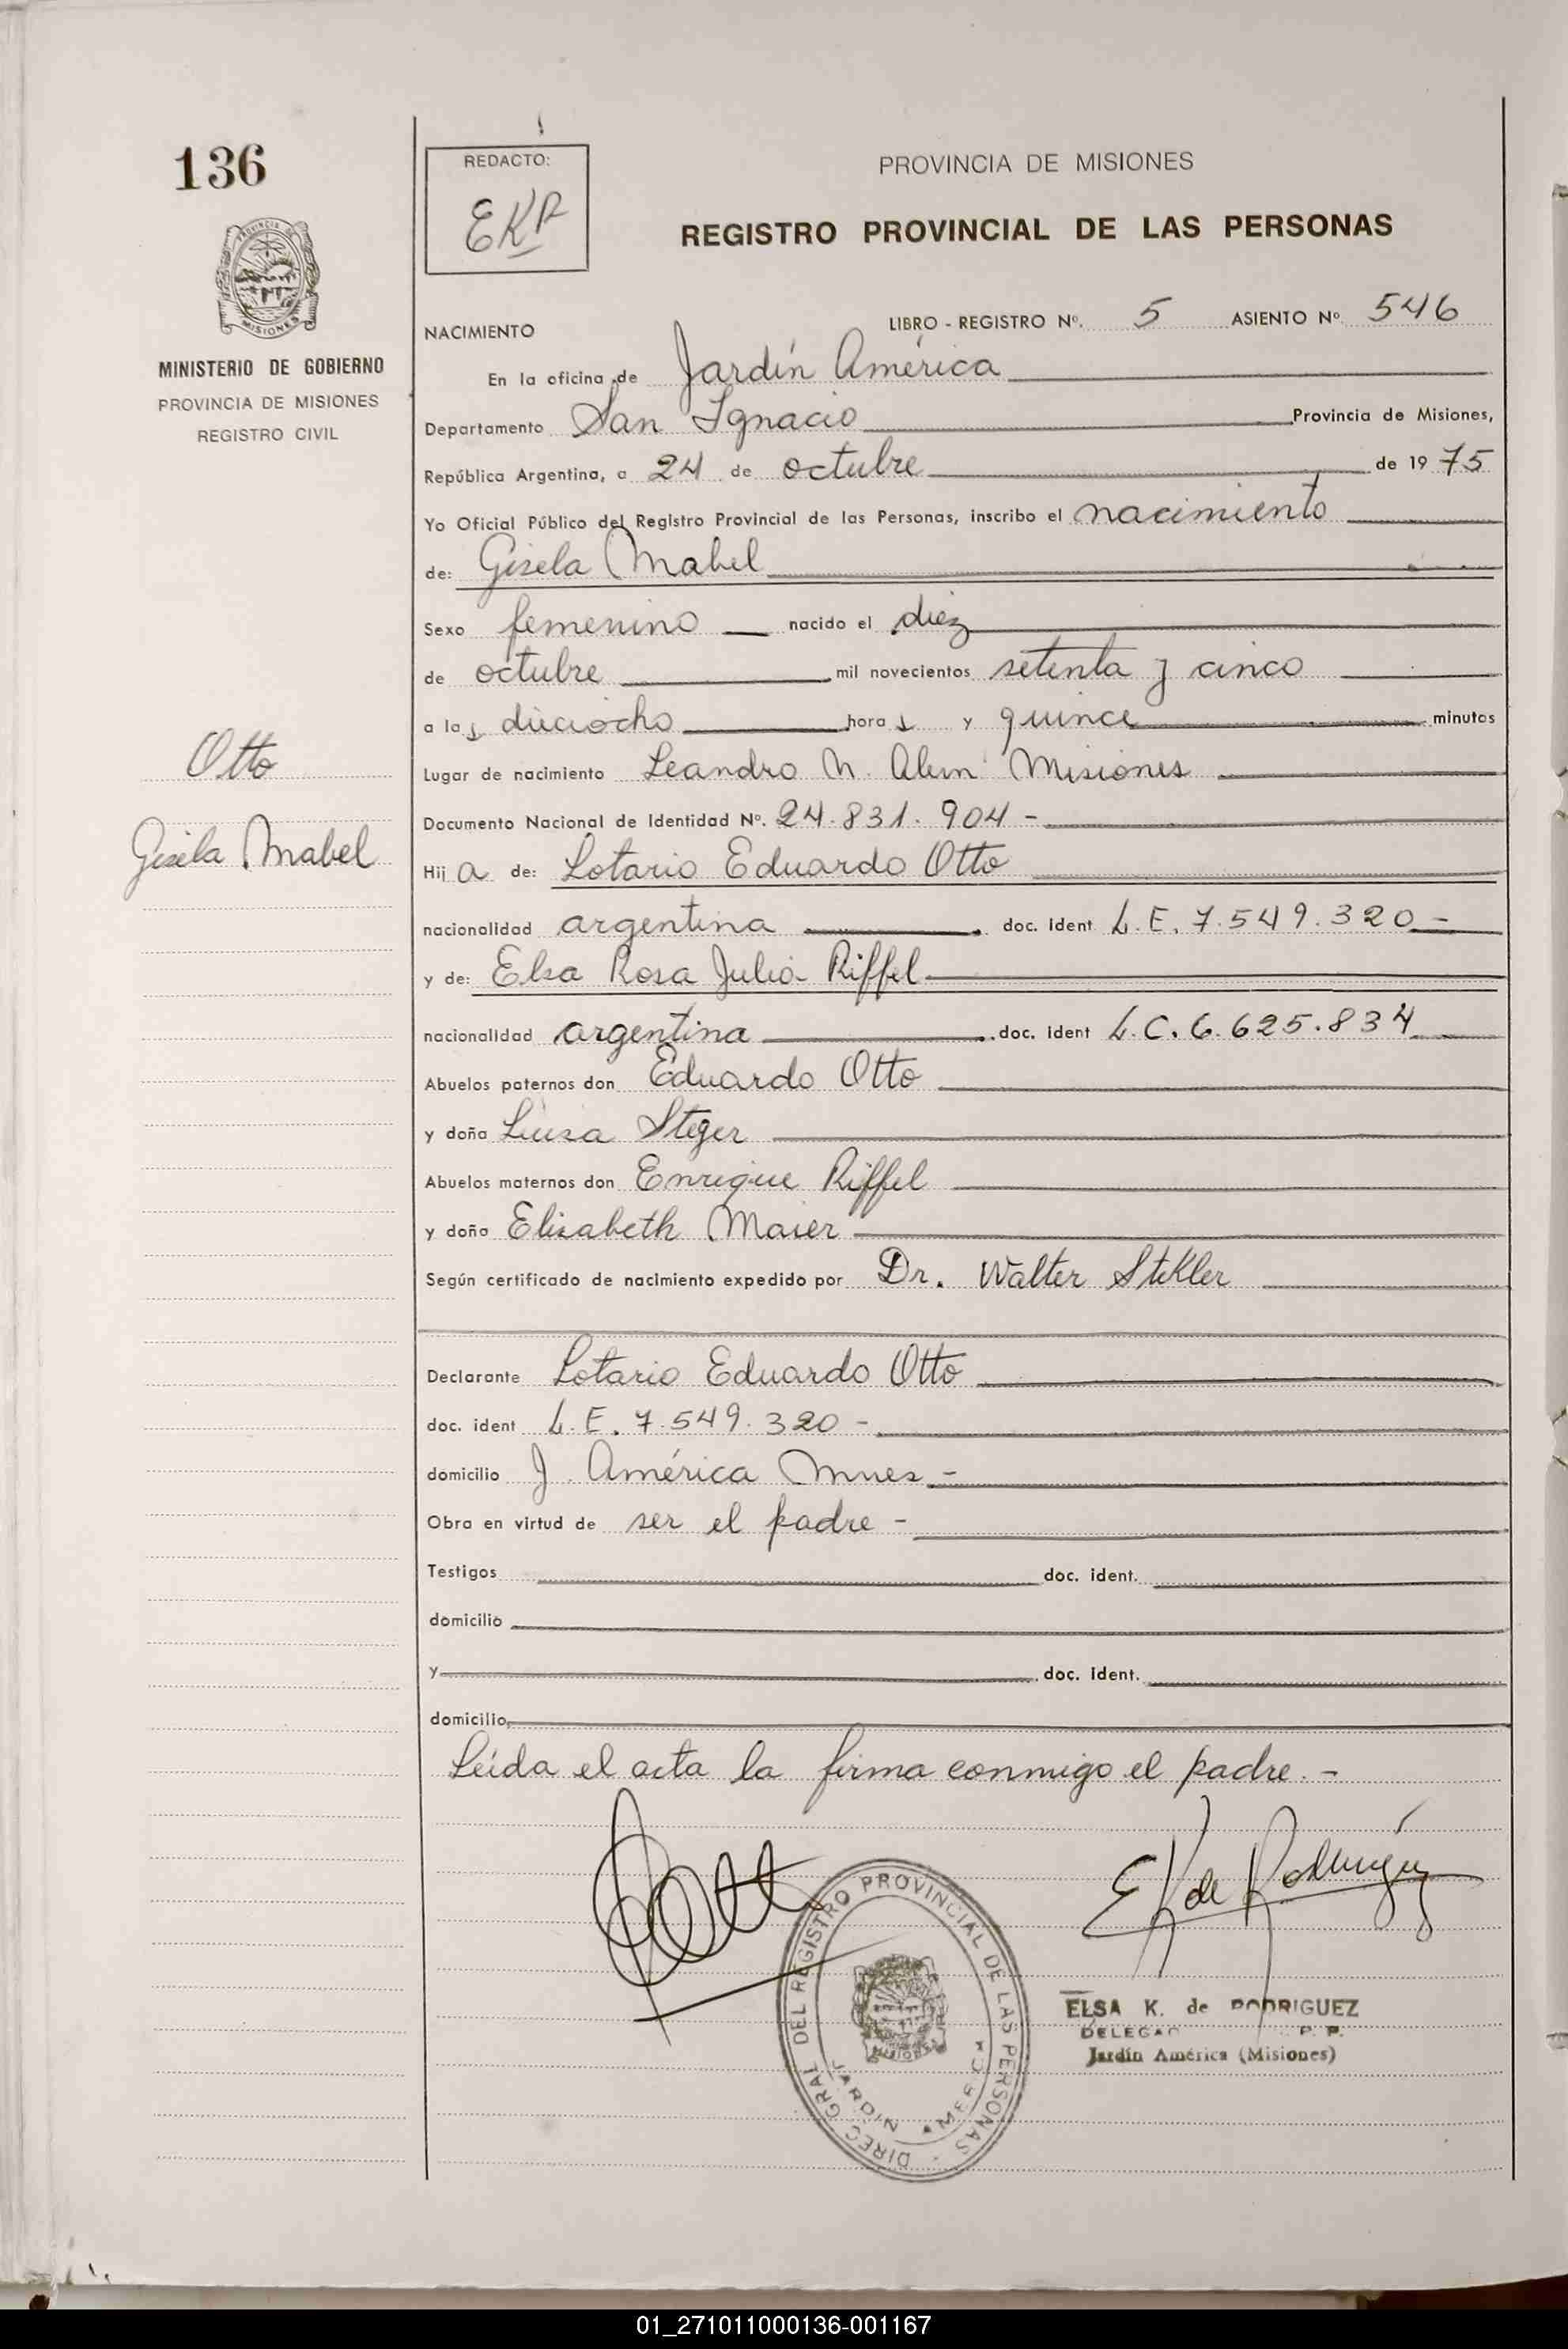 136
MINISTERIO DE GOBIERNO
PROVINCIA DE MISIONES
REGISTRO CIVIL
Otto
Gisela Mabel
REDACTO:
EKR
PROVINCIA DE MISIONES
REGISTRO PROVINCIAL DE LAS PERSONAS
NACIMIENTO
LIBRO - REGISTRO Nº. 5 ASIENTO Nº. 546
En la oficina de Jardín América
Departamento San Ignacio Provincia de Misiones,
República Argentina, a 24 de octubre de 1975
Yo Oficial Público del Registro Provincial de las Personas, inscribo el nacimiento
de: Gisela Mabel
Sexo femenino nacido el diez
de octubre mil novecientos setenta y cinco
a las dieciocho horas y quince minutos
Lugar de nacimiento Leandro N. Alem Misiones
Documento Nacional de Identidad Nº. 24.831.904 -
Hija de: Lotario Eduardo Otto
nacionalidad argentina doc. ident L.E. 7.549.320 -
y de: Elsa Rosa Julia Riffel
nacionalidad argentina doc. ident L.C. 6.625.834
Abuelos paternos don Eduardo Otto
y doña Luisa Steger
Abuelos maternos don Enrique Riffel
y doña Elisabeth Maier
Según certificado de nacimiento expedido por Dr. Walter Stekler
Declarante Lotario Eduardo Otto
doc. ident L.E. 7.549.320 -
domicilio J. América Mnes -
Obra en virtud de ser el padre -
Testigos doc. ident.
domicilio
y doc. ident.
domicilio
Leída el acta la firma conmigo el padre. -
Otto
EK de Rodriguez
DIREC. GRAL. DEL REGISTRO PROVINCIAL DE LAS PERSONAS
MISIONES
JARDIN AMERICA
ELSA K. de RODRIGUEZ
P. P.
Jardín América (Misiones)
01_271011000136-001167